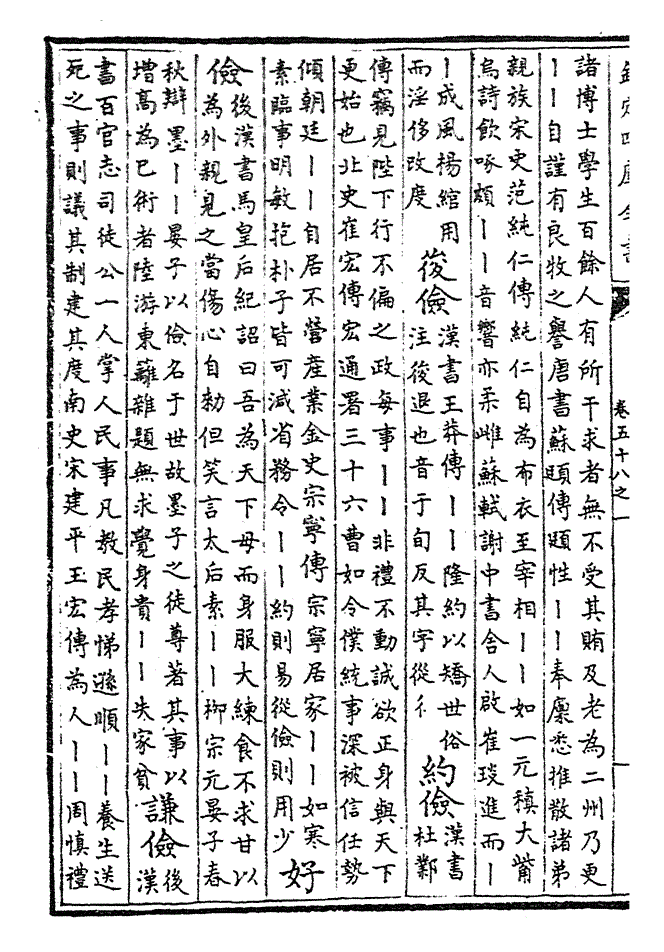 欽定四庫全書
卷五十八之一
諸博士學生百餘人有所干求者無不受其賂及老為二州乃更
丨丨自謹有良牧之譽唐書蘇頲傳頲性丨丨奉廩悉推散諸弟
親族宋史范純仁傳純仁自為布衣至宰相丨丨如一元稹大觜
烏詩飲啄頗丨丨音響亦柔雌蘇軾謝中書舍人啟崔琰進而丨
丨成風楊綰用
而淫侈改度
儉
漢書王莽傳丨丨隆約以矯世俗
注退也音千旬反其字從彳
約儉
漢書
杜鄴
傳竊見陛下行不偏之政每事丨丨非禮不動誠欲正身與天下
更始也北史崔宏傳宏通署三十六曹如令僕統事深被信任勢
傾朝廷丨丨自居不營產業金史宗寧傳宗寧居家丨丨如寒
素臨事明敏抱朴子皆可減省務令丨丨約則易從儉則用少
好
儉
後漢書馬皇后紀詔曰吾為天下母而身服大練食不求甘以
為外親見之當傷心自勑但笑言太后素丨丨柳宗元晏子春
秋辯墨丨丨晏子以儉名于世故墨子之徒尊著其事以
增高為己術者陸游東籬雜題無求覺身貴丨丨失家貧
謙儉
後
漢
書百官志司徒公一人掌人民事凡教民孝悌遜順丨丨養生送
死之事則議其制建其度南史宋建平王宏傳為人丨丨周慎禮